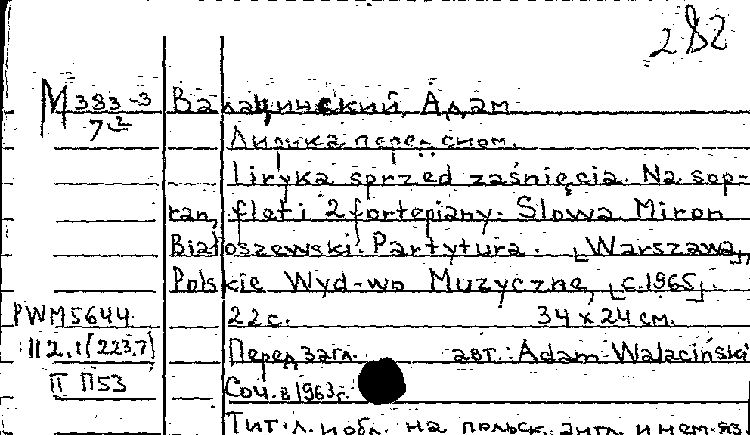 282
М 383-3
7-2
Валацинский, Адам
Лирика перед сном.
Liryka sprzed zaśnięcia. Na sop-
ran, flet i 2 fortepiany. Słowa Miron
Białoszewski. Partytura. [Warszawa],
Polskie Wyd-wo Muzyczne, [c.1965].
PWM5644 22 с. 34 x 24 см.
112.1(223.7) Перед загл. авт.: Adam Walaciński
II П53 Соч. в 1963г.
Тит. л. и обл. на польск. англ. и нем. яз.